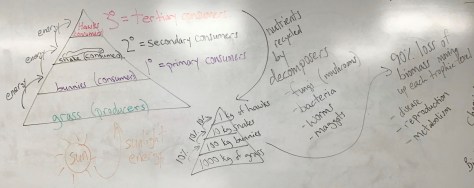 energy
hawks
(consumer)
3° = tertiary consumers
energy
snake (consumer)
2° = secondary consumers
energy
bunnies (consumer)
1° = primary consumers
grass (producers)
sun
energy
nutrients
recycled
by
decomposers
- fungi (mushrooms)
- bacteria
- worms
- maggots
1 kg of hawks
10 kg snakes
100 kg bunnies
1000 kg of grass
10%
10%
10%
90% loss of
biomass moving
up each trophic level
- disease
- reproduction
- metabolism